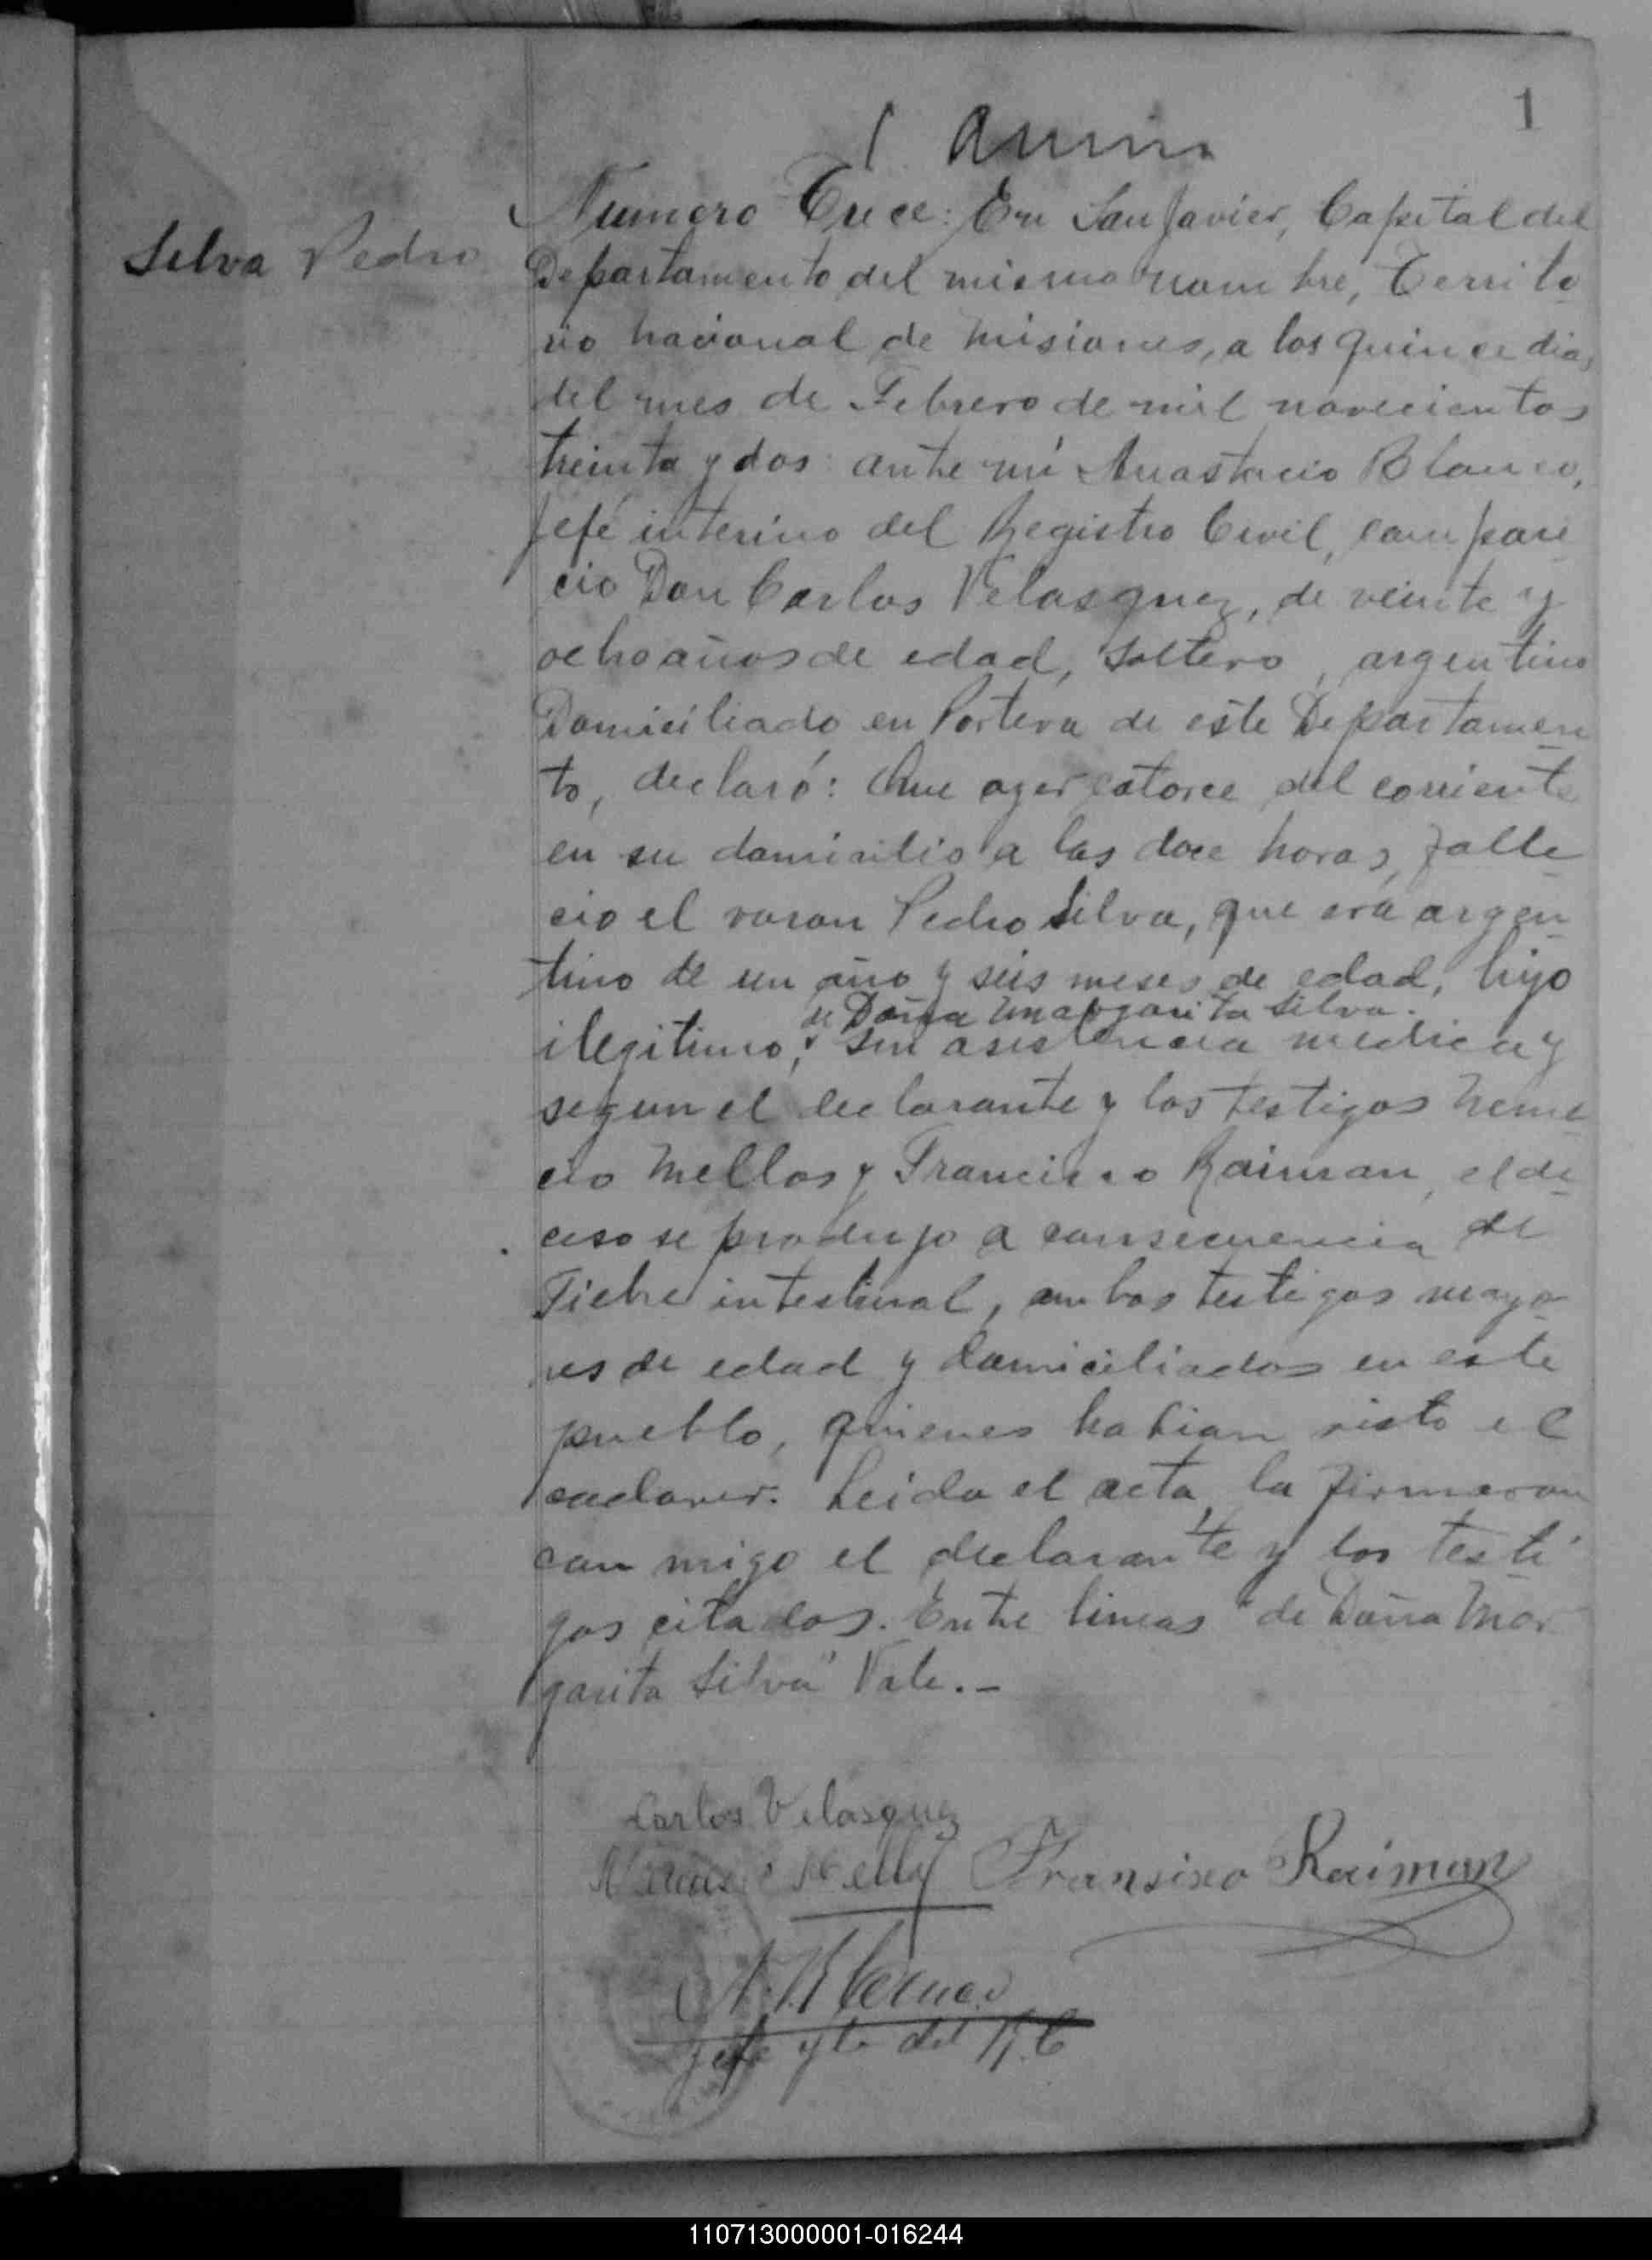 1
Silva Pedro
Numero Trece: En San Javier, Capital del
Departamento del mismo nombre, Territo
rio nacional de Misiones, a los quince dias
del mes de Febrero de mil novecientos
treinta y dos: ante mi Anastacio Blanco,
Jefe interino del Registro Civil, compare
cio Don Carlos Velasquez, de veinte y
ocho años de edad, soltero, argentino
Domiciliado en Portera de este Departamen
to, declaró: Que ayer catorce del corriente
en su domicilio a las doce horas, falle
cio el varon Pedro Silva, que era argen
tino de un año y seis meses de edad, hijo
de Doña Margarita Silva.
ilegitimo; sin asistencia medica y
segun el declarante y los testigos Neme
cio Mellos y Francisco Raiman, el de
ceso se produjo a consecuencia de
Fiebre intestinal, ambos testigos mayo
res de edad y domiciliados en este
pueblo, quienes habian visto el
cadaver. Leida el acta, la firmaron
con migo el declarante y los testi
gos citados. Entre lineas "de Doña Mar
garita Silva" Vale.-
Carlos Velasquez
Fransisco Raiman
A. Blanco
Jefe yto del R. C
110713000001-016244